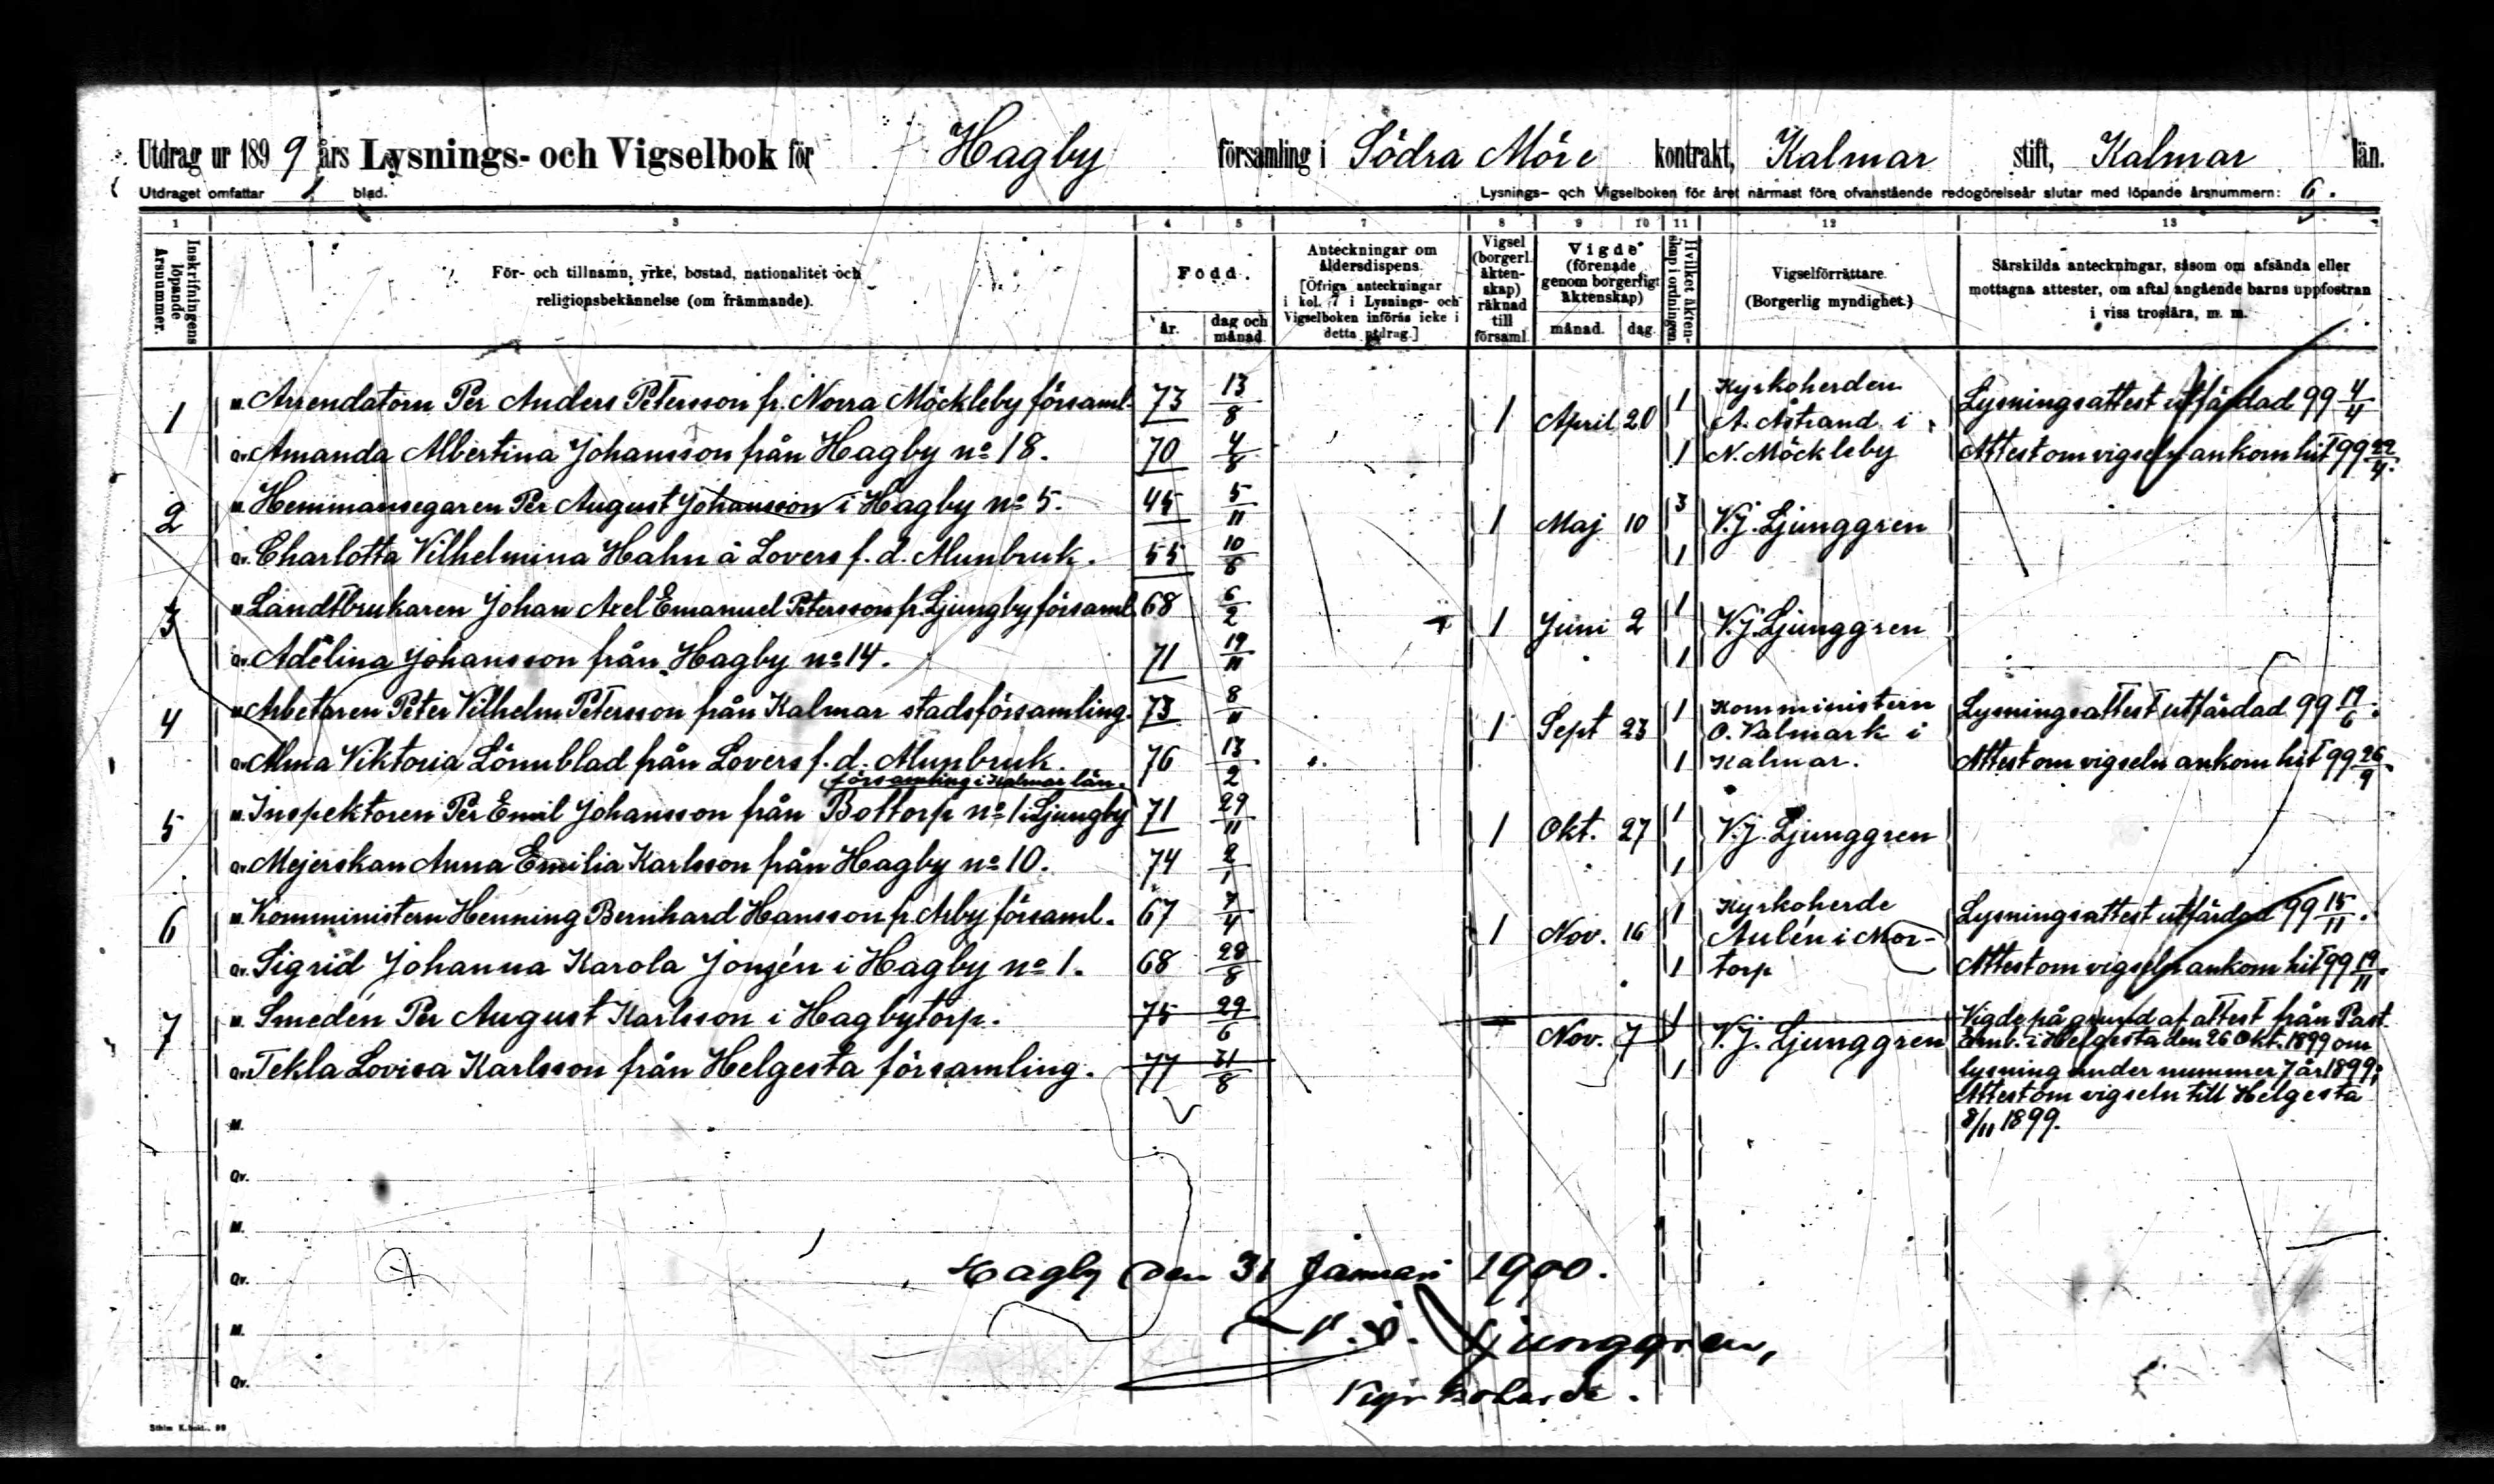 Utdrag ur 1899 års Lysnings- och Vigselbok för Hagby församling i Södra Möre kontrakt, Kalmar stift, Kalmar län.
Utdraget omfattar 1 blad. Lysnings- och Vigselboken för året närmast före ofvanstående redogörelseår slutar med löpande årsnummern: 6.
1 3 4 5 7 8 9 10 11 12 13
Inskrifningens löpande årsnummer.
För- och tillnamn, yrke, bostad, nationalitet och
religionsbekännelse (om främmande).
Född.
år. dag och månad
Anteckningar om
åldersdispens
[Öfriga anteckningar
i kol. 7 i Lysnings- och
Vigselboken införas icke i
detta utdrag.]
Vigsel
(borgerl.
äkten-
skap)
räknad
till
församl.
Vigde
(förenade
genom borgerligt
äktenskap)
månad. dag.
Hvilket äkten-
skap i ordningen.
Vigselförrättare.
(Borgerlig myndighet.)
Särskilda anteckningar, såsom om afsända eller
mottagna attester, om aftal angående barns uppfostran
i viss troslära, m. m.
1 M. Arrendatorn Per Anders Petersson fr. Norra Möckleby församl. 73 13/8 1 April 20 1 Kyrkoherden A. Åstrand i Lysningsattest utfärdad 99 4/4
Qv. Amanda Albertina Johansson från Hagby nº 18. 70 4/8 1 N. Möckleby Attest om vigseln ankom hit 99 22/4.
2 M. Hemmansegaren Per August Johansson i Hagby nº 5. 45 5/11 1 Maj 10 3 V. J. Ljunggren
Qv. Charlotta Vilhelmina Hahn å Lovers f. d. Alunbruk. 55 10/8 1
3 M. Landtbrukaren Johan Axel Emanuel Petersson fr. Ljungby församl. 68 6/2 1 Juni 2 1 V. J. Ljunggren
Qv. Adèlina Johansson från Hagby nº 14. 71 19/11 1
4 M. Arbetaren Peter Vilhelm Petersson från Kalmar stadsförsamling. 73 8/11 1 Sept 23 1 Komministern O. Valmark i Lysningsattest utfärdad 99 19/6.
Qv. Alma Viktoria Lönnblad från Lovers f. d. Alunbruk. 76 13/2 1 Kalmar. Attest om vigseln ankom hit 99 26/9.
församling i Kalmar län.
5 M. Inspektoren Per Emil Johansson från Bottorp nº 1 i Ljungby 71 29/11 1 Okt. 27 1 V. J. Ljunggren
Qv. Mejerskan Anna Emilia Karlsson från Hagby nº 10. 74 2/1 1
6 M. Komministern Henning Bernhard Hansson fr. Arby församl. 67 7/4 1 Nov. 16 1 Kyrkoherde Aulén i Mor- Lysningsattest utfärdad 99 15/11.
Qv. Sigrid Johanna Karola Jonzén i Hagby nº 1. 68 28/8 1 torp Attest om vigseln ankom hit 99 19/11.
7 M. Smeden Per August Karlsson i Hagbytorp. 75 29/6 Nov. 7 1 V. J. Ljunggren Vigde på grund af attest från Past.
Emb. i Helgesta den 26 Okt. 1899 om
Qv. Tekla Lovisa Karlsson från Helgesta församling. 77 31/8 1 lysning under nummer 7 år 1899;
Attest om vigseln till Helgesta
8/11 1899.
M.
Qv.
M.
Qv. Hagby den 31 Januari 1900.
M. V. J. Ljunggren,
Qv. Kyrkoherde.
Sthlm K.